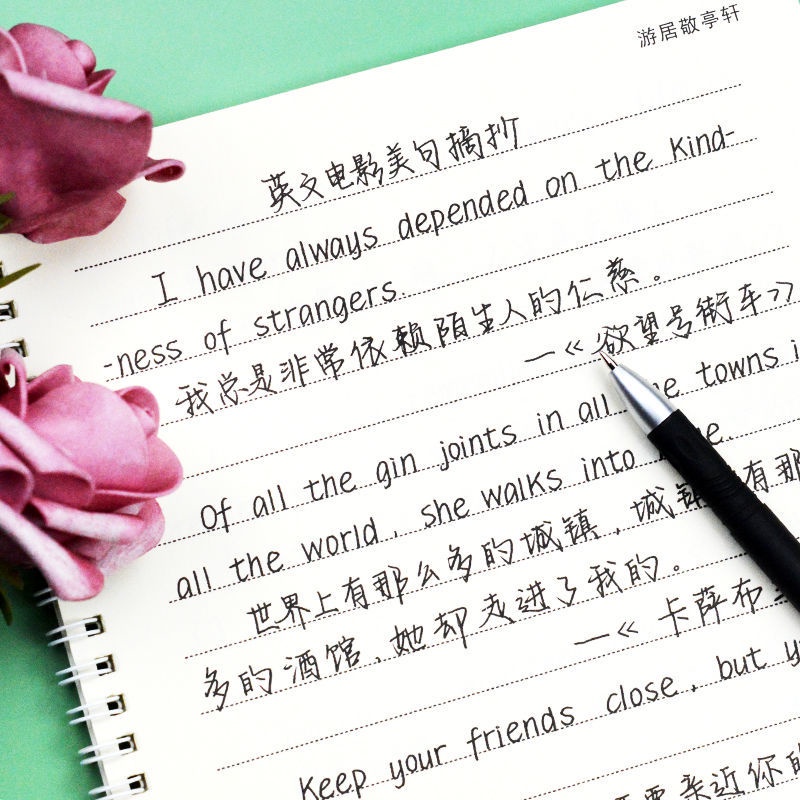 游居敬亭轩
英文电影美句摘抄
I have always depended on the kind-
-ness of strangers.
我总是非常依赖陌生人的仁慈。
—《欲望号街车》
Of all the gin joints in all towns
all the world, she walks into
世界上有那么多的城镇，城镇有那
多的酒馆，她却走进了我的。
—《卡萨布
Keep your friends close, but
要亲近你的